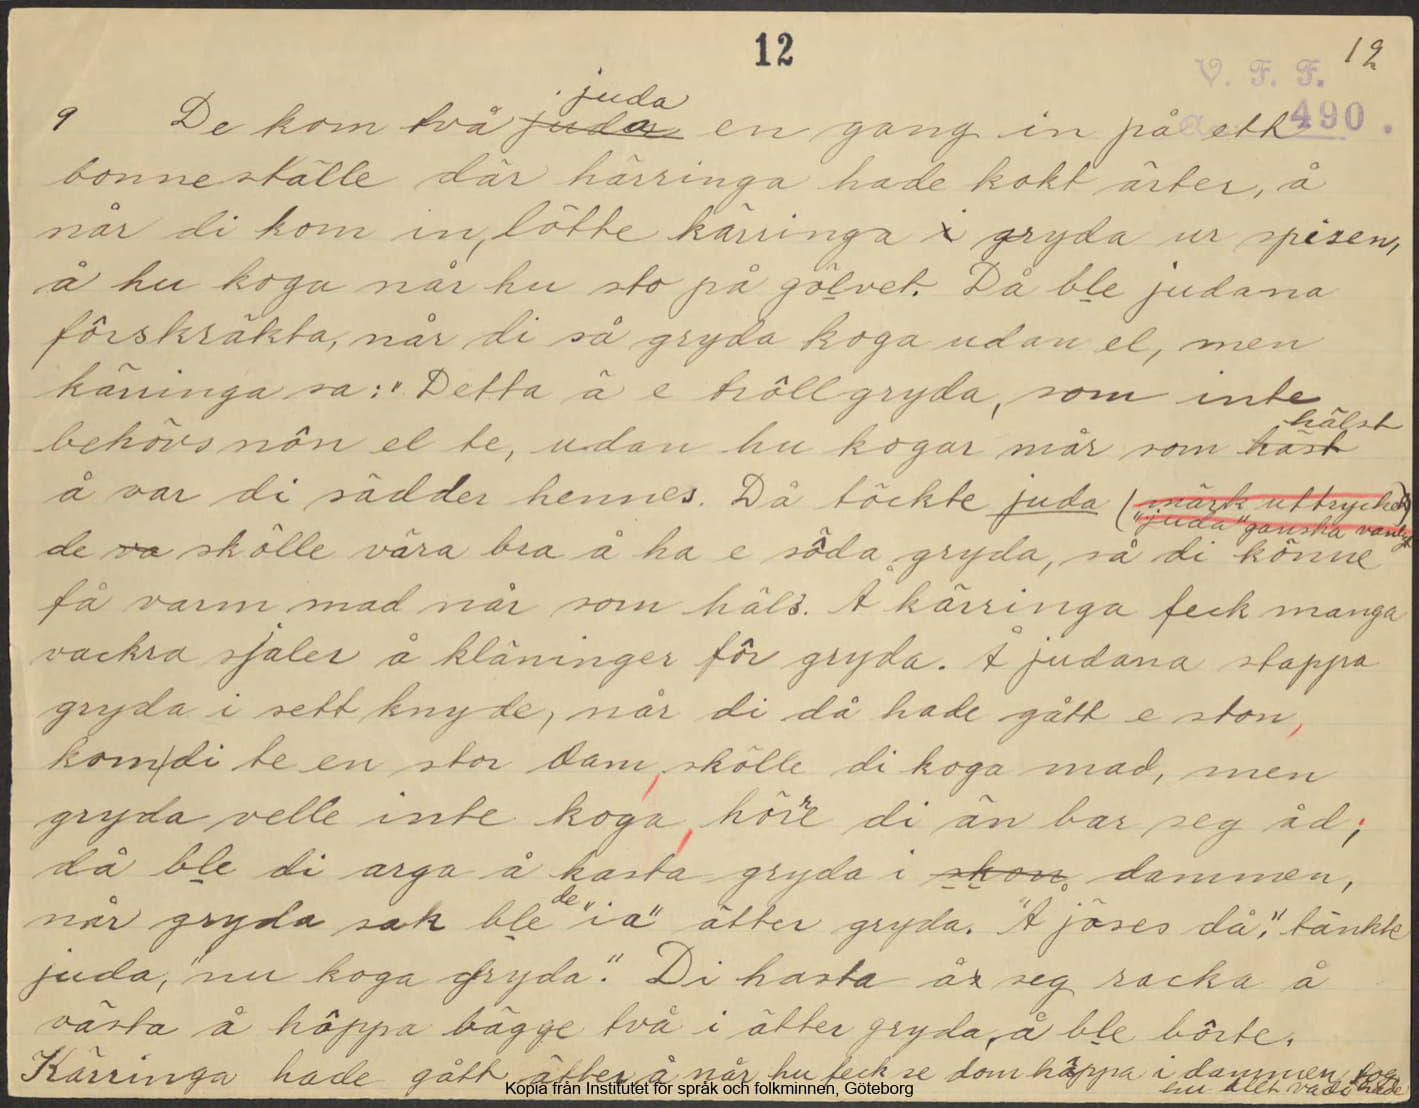 12
12
V. F. F.
490.
juda
9 De kom två judar en gang in på ett
bonneställe där härringa hade kokt ärter, å
når di kom in, lötte kärringa i gryda ur spisen,
å hu koga når hu sto på gölvet. Då ble judana
förskräkta, når di så gryda koga udan el, men
käringa sa: "Detta ä e trôllgryda, som inte
hälst
behövs nôn el te, udan hu kogar mår som häst
å var di sädder hennes. Då töckte juda (märk uttrycket)
"juda" ganska vanligt
de va skôlle vära bra å ha e sôda gryda, så di kônne
få varm mad når som häls. Å kärringa feck manga
vackra sjaler å kläninger fôr gryda. Å judana stappa
gryda i sett knyde, når di då hade gått e ston,
kom di te en stor dam, skôlle di koga mad, men
gryda velle inte koga, hôrre di än bar seg åd;
då ble di arga å kasta gryda i skon dammen,
de
når gryda sak ble "ia" ätter gryda. "Å jöses då", tänkte
juda, "nu koga gryda". Di hasta år seg racka å
västa å hôppa bägge två i ätter gryda, å ble bôrte.
Kärringa hade gått ätter å når hu feck se dom hôppa i dammen, tog
hu allt va di hade
Kopia från Institutet för språk och folkminnen, Göteborg